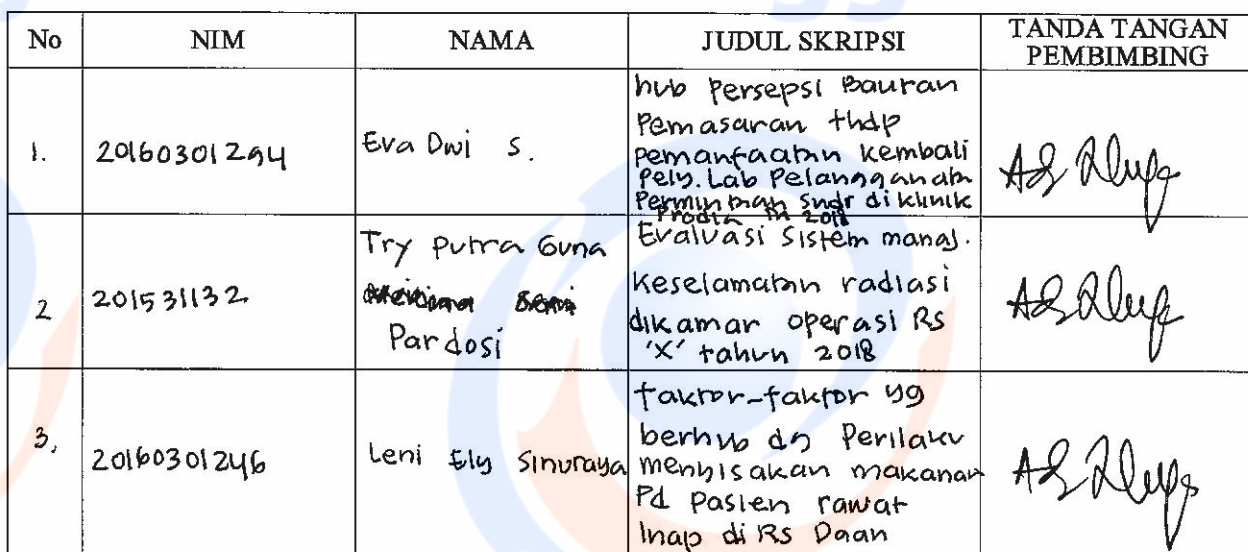 No NIM NAMA JUDUL SKRIPSI TANDA TANGAN PEMBIMBING
1. 20160301294 Eva Dwi S. hub Persepsi Bauran
Pemasaran thdp
pemanfaatan kembali
Pely. Lab Pelangganatn
Permintaan sndr di klinik
Prodia th 2018
2 201531132 Try putra Guna
Pardosi
Evaluasi Sistem manaj.
Keselamatan radiasi
dikamar operasi Rs
'X' tahun 2018
3. 20160301246 Leni Ely Sinuraya faktor-faktor yg
berhub dg Perilaku
menyisakan makanan
Pd Pasien rawat
Inap di Rs Daan